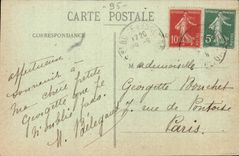 95-
CARTE POSTALE
CORRESPONDANCE
affectueux
souvenir
ma chère petite
Georgette que je
n'oublie pas.
M.
Mademoiselle
Georgette Bouchet
7 rue de Pontoise
Paris.
10
5